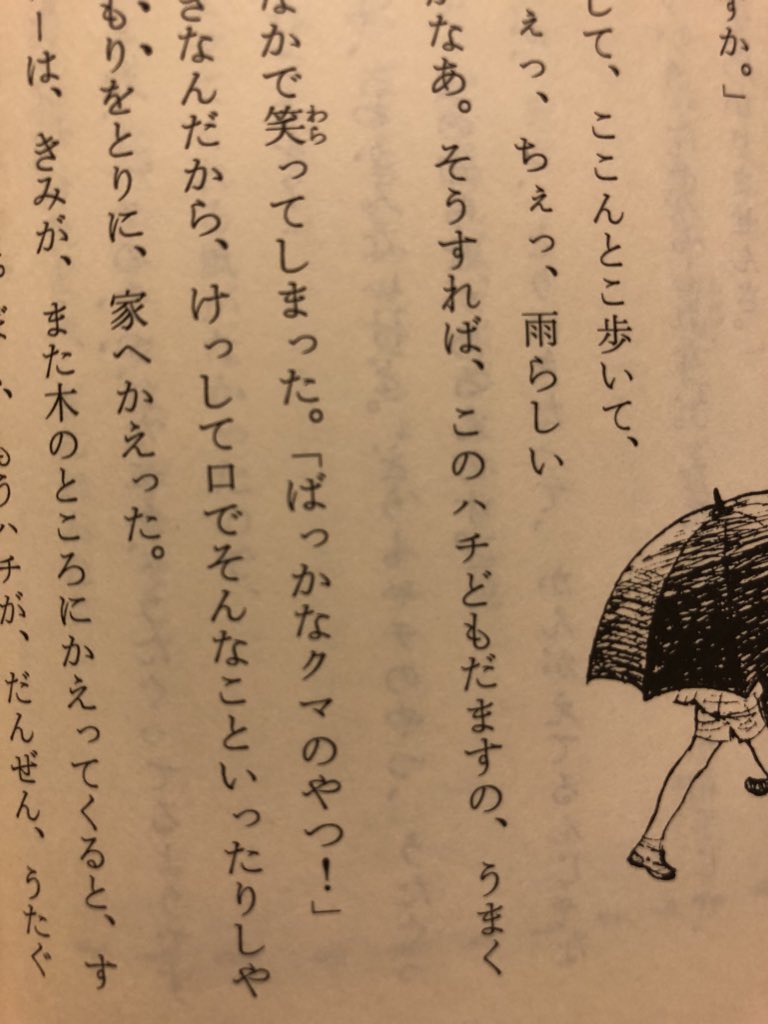 すか。」
して、ここんとこ歩いて、
ぇっ、ちぇっ、雨らしい
かなあ。そうすれば、このハチどもだますの、うまく
なかで笑ってしまった。「ばっかなクマのやつ！」
きなんだから、けっして口でそんなこといったりしや
もりをとりに、家へかえった。
ーは、きみが、また木のところにかえってくると、す
うハチが、だんぜん、うたぐ